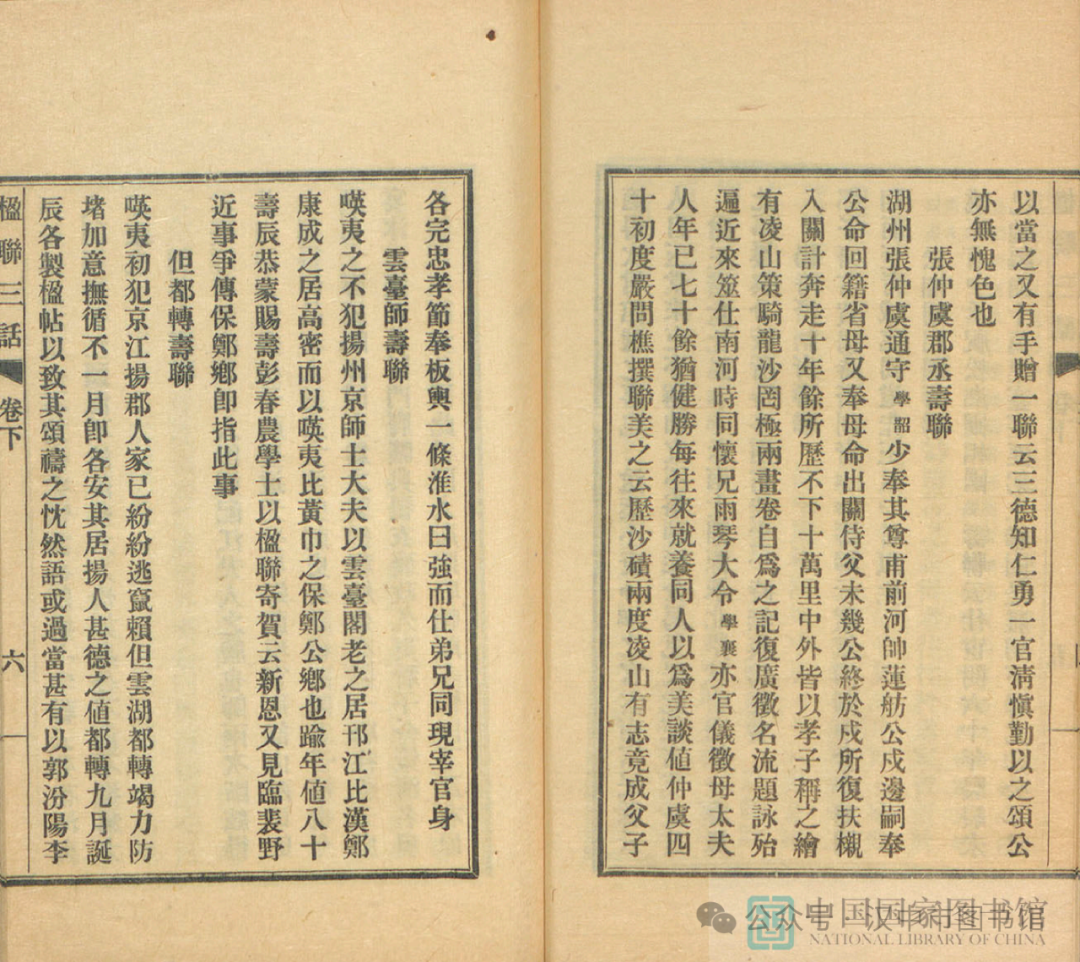 以當之又有手贈一聯云三德知仁勇一官淸愼勤以之頌公
亦無愧色也
張仲虞郡丞壽聯
湖州張仲虞通守學韶少奉其尊甫前河帥蓮舫公戍邊嗣奉
公命回籍省母又奉母命出關侍父未幾公終於戍所復扶櫬
入關計奔走十年餘所歷不下十萬里中外皆以孝子稱之繪
有凌山策騎龍沙罔極兩畫卷自爲之記復廣徵名流題詠殆
遍近來筮仕南河時同懷兄雨琴大令學襄亦官儀徵母太夫
人年已七十餘猶健勝每往來就養同人以爲美談値仲虞四
十初度嚴問樵撰聯美之云歷沙磧兩度凌山有志竟成父子
各完忠孝節奉板輿一條淮水曰強而仕弟兄同現宰官身
雲臺師壽聯
嘆夷之不犯揚州京師士大夫以雲臺閣老之居邗江比漢鄭
康成之居高密而以嘆夷比黃巾之保鄭公鄕也踰年値八十
壽辰恭蒙賜壽彭春農學士以楹聯寄賀云新恩又見臨裴野
近事爭傳保鄭鄕卽指此事
但都轉壽聯
嘆夷初犯京江揚郡人家已紛紛逃竄賴但雲湖都轉竭力防
堵加意撫循不一月卽各安其居揚人甚德之値都轉九月誕
辰各製楹帖以致其頌禱之忱然語或過當甚有以郭汾陽李
楹聯三話 卷下 六
中国国家图书馆
NATIONAL LIBRARY OF CHINA
公众号·汉中市图书馆